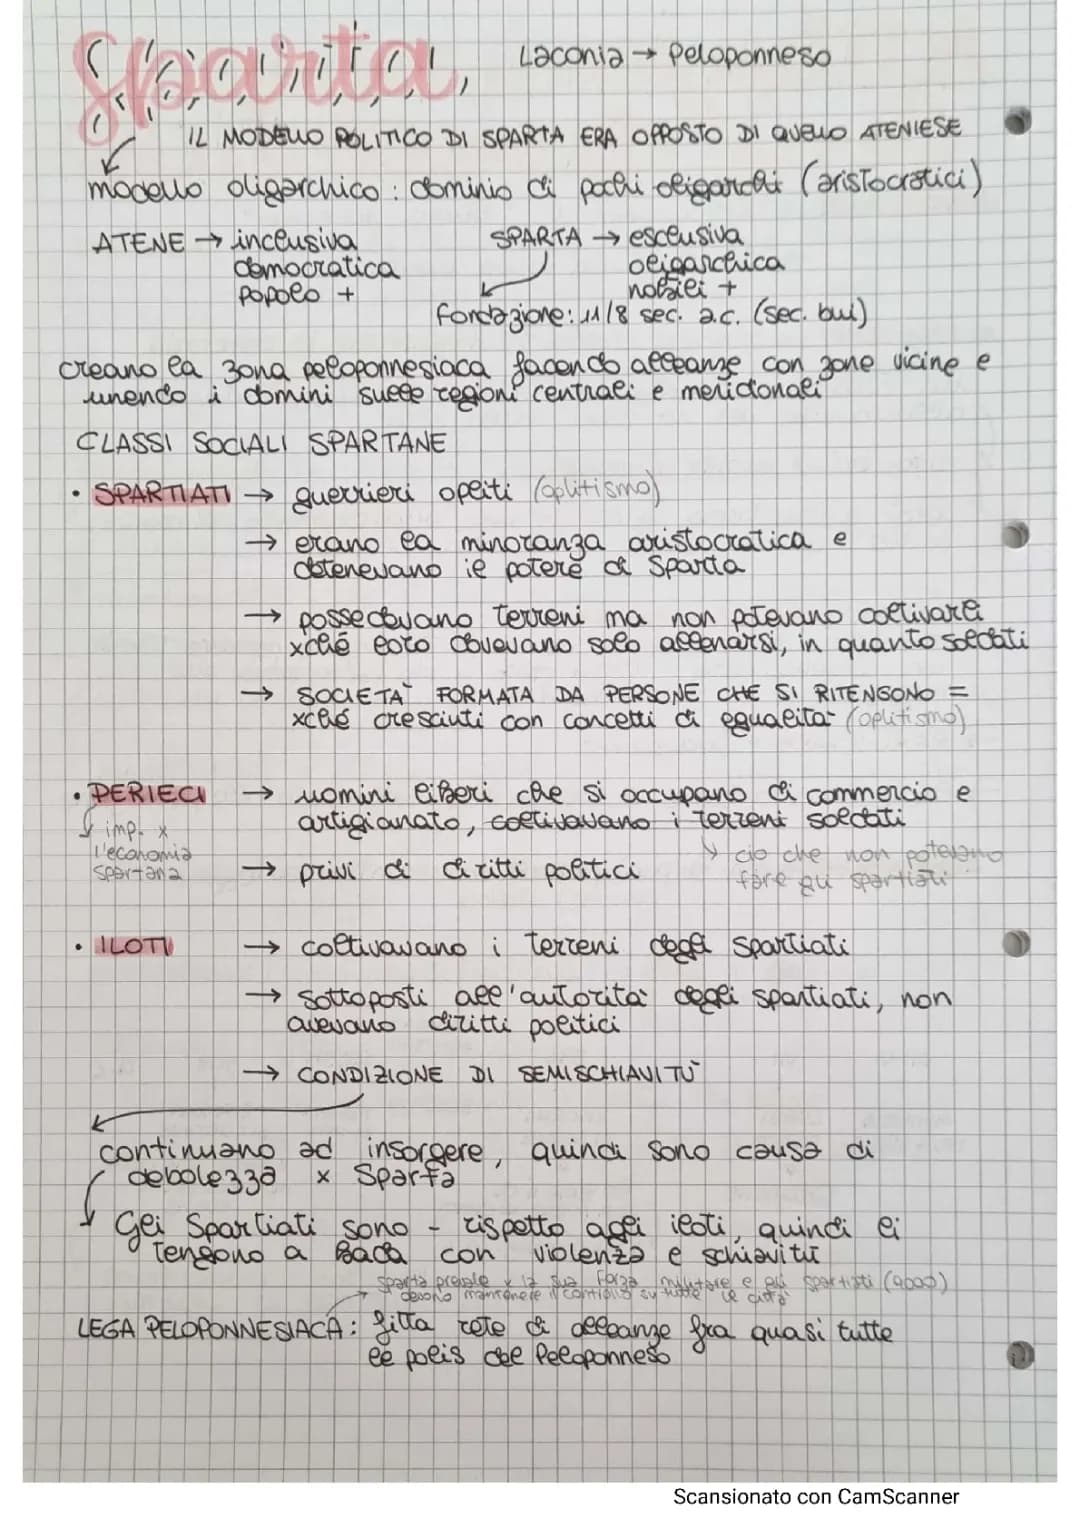 Sparta Laconia → Peloponneso
IL MODELLO POLITICO DI SPARTA ERA OPPOSTO DI QUELLO ATENIESE
modello oligarchico: dominio di pochi oligarchi (aristocratici)
ATENE → inclusiva SPARTA → esclusiva
democratica oligarchica
popolo + nobili +
fondazione: 11/8 sec. a.c. (sec. bui)
creano la zona peloponnesiaca facendo alleanze con zone vicine e
unendo i domini sulle regioni centrali e meridionali
CLASSI SOCIALI SPARTANE
• SPARTIATI → guerrieri opliti (oplitismo)
→ erano la minoranza aristocratica e
detenevano il potere di Sparta
→ possedevano terreni ma non potevano coltivarli
xché loro dovevano solo allenarsi, in quanto soldati
→ SOCIETA' FORMATA DA PERSONE CHE SI RITENGONO =
xché cresciuti con concetti di egualita' (oplitismo)
• PERIECI → uomini liberi che si occupano di commercio e
artigianato, coltivavano i terreni soldati
↓ imp. x
l'economia
spartana
↓ ciò che non potevano
fare gli spartiati
→ privi di diritti politici
• ILOTI → coltivavano i terreni degli spartiati
→ sottoposti all'autorita' degli spartiati, non
avevano diritti politici
→ CONDIZIONE DI SEMISCHIAVITU'
continuano ad insorgere, quindi sono causa di
debolezza x Sparta
Gli Spartiati sono - rispetto agli iloti, quindi li
tengono a bada con violenza e schiavitù
sparta prevale x la sua forza militare e gli spartiati (9000)
devono mantenere il controllo su tutte le città
LEGA PELOPONNESIACA: fitta rete di alleanze fra quasi tutte
le poleis del Peloponneso
Scansionato con CamScanner